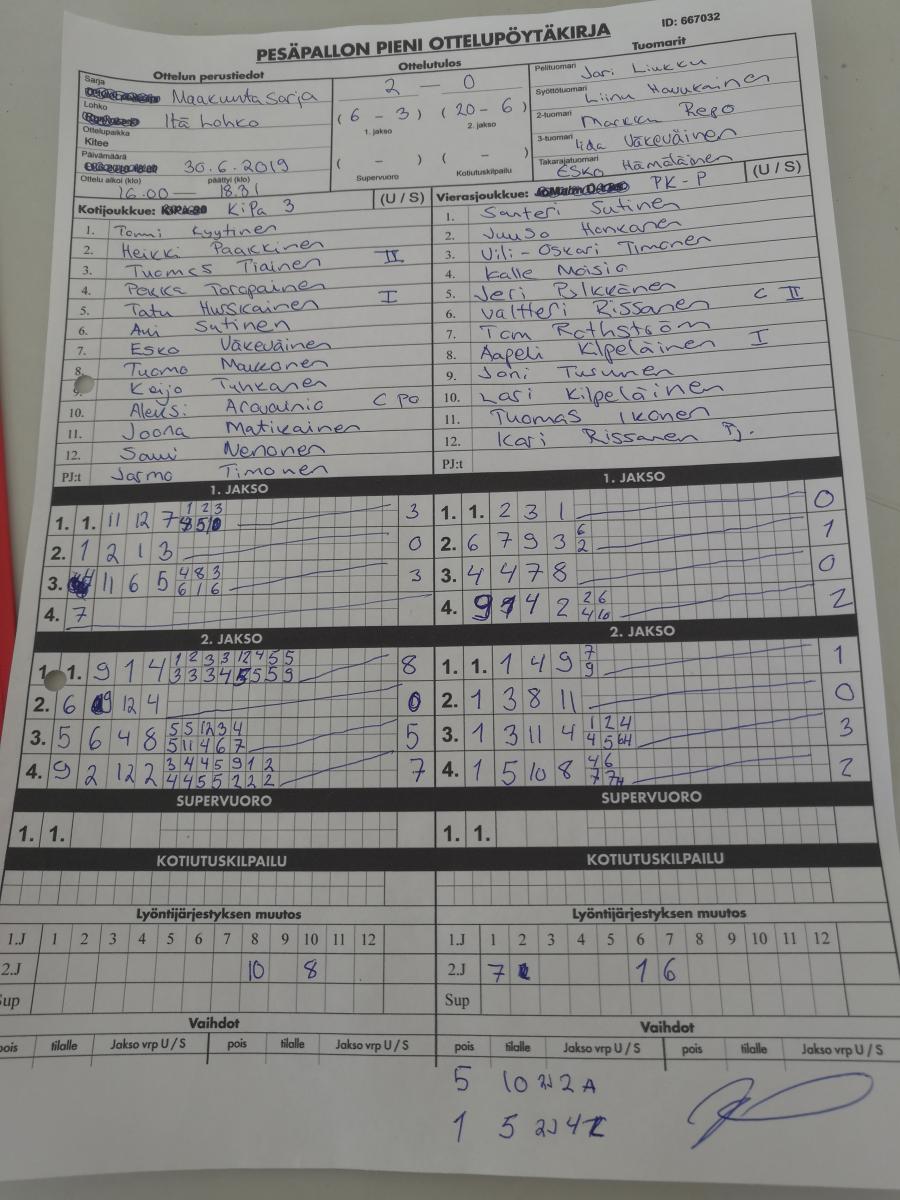 ID: 667032
PESÄPALLON PIENI OTTELUPÖYTÄKIRJA
Ottelun perustiedot
Sarja
Maakuntasarja
Lohko
Itä Lohko
Ottelupaikka
Kitee
Päivämäärä
30.6.2019
Ottelu alkoi (klo) päättyi (klo)
16.00 — 18.31
Ottelutulos
2 — 0
( 6 - 3 ) ( 20 - 6 )
1. jakso 2. jakso
( - ) ( - )
Supervuoro Kotiutuskilpailu
Tuomarit
Pelituomari Jari Liukku
Syöttötuomari Liinu Havukainen
2-tuomari Markku Repo
3-tuomari Iida Väkeväinen
Takarajatuomari Esko Hämäläinen
Kotijoukkue: KiPa 3 (U / S)
1. Tommi Kyytinen
2. Heikki Paakkinen
3. Tuomas Tiainen II
4. Pekka Toropainen
5. Tatu Hurskainen I
6. Sutinen
7. Esko Väkeväinen
8. Tuomo Makkonen
9. Keijo Tuhkanen
10. Aleksi C PO
11. Joona Matikainen
12. Sami Nenonen
PJ:t Jarmo Timonen
Vierasjoukkue: PK - P (U / S)
1. Santeri Sutinen
2. Juuso Honkanen
3. Vili-Oskari Timonen
4. Kalle Moisio
5. Jeri Pulkkinen
6. Valtteri Rissanen C II
7. Tom Rothström
8. Aapeli Kilpeläinen I
9. Joni Turunen
10. Lari Kilpeläinen
11. Tuomas Ikonen
12. Kari Rissanen PJ.
PJ:t
1. JAKSO
1. 1. 11 12 7 1 2 3 3
2. 1 2 1 3 0
3. 11 6 5 4 8 3 3
6 1 6
4. 7
1. JAKSO
1. 1. 2 3 1 0
2. 6 7 9 3 6 1
2
3. 4 4 7 8 0
4. 4 2 2 6 2
4 10
2. JAKSO
1. 1. 9 1 4 1 2 3 3 12 4 5 5 8
3 3 3 4 5 5 5 9
2. 6 9 12 4 0
3. 5 6 4 8 5 5 12 3 4 5
5 11 4 6 7
4. 9 2 12 2 3 4 4 5 9 1 2 7
4 4 5 5 2 2 2
2. JAKSO
1. 1. 1 4 9 7 1
9
2. 1 3 8 11 0
3. 1 3 11 4 1 2 4 3
4 5
4. 1 5 10 8 4 6 2
7
SUPERVUORO
1. 1.
SUPERVUORO
1. 1.
KOTIUTUSKILPAILU
KOTIUTUSKILPAILU
Lyöntijärjestyksen muutos
1.J 1 2 3 4 5 6 7 8 9 10 11 12
2.J 10 8
Sup
Lyöntijärjestyksen muutos
1.J 1 2 3 4 5 6 7 8 9 10 11 12
2.J 7 1 6
Sup
Vaihdot
pois tilalle Jakso vrp U / S pois tilalle Jakso vrp U / S
Vaihdot
pois tilalle Jakso vrp U / S pois tilalle Jakso vrp U / S
5 10 2J 2 A
1 5 2J 4